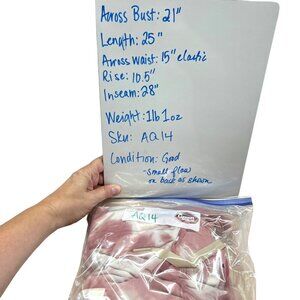 Across Bust: 21"
Length: 25"
Across Waist: 15" elastic
Rise: 10.5"
Inseam: 28"
Weight: 1lb 1oz
Sku: AQ14
Condition: Good
- Small flaw
on back as shown
AQ14